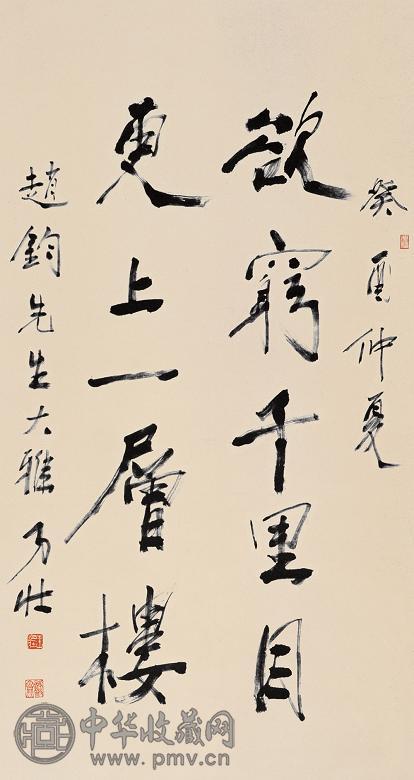 癸酉仲夏
欲窮千里目
更上一層樓
趙鈞先生大雅 乃壯
中华收藏网
www.pmv.cn